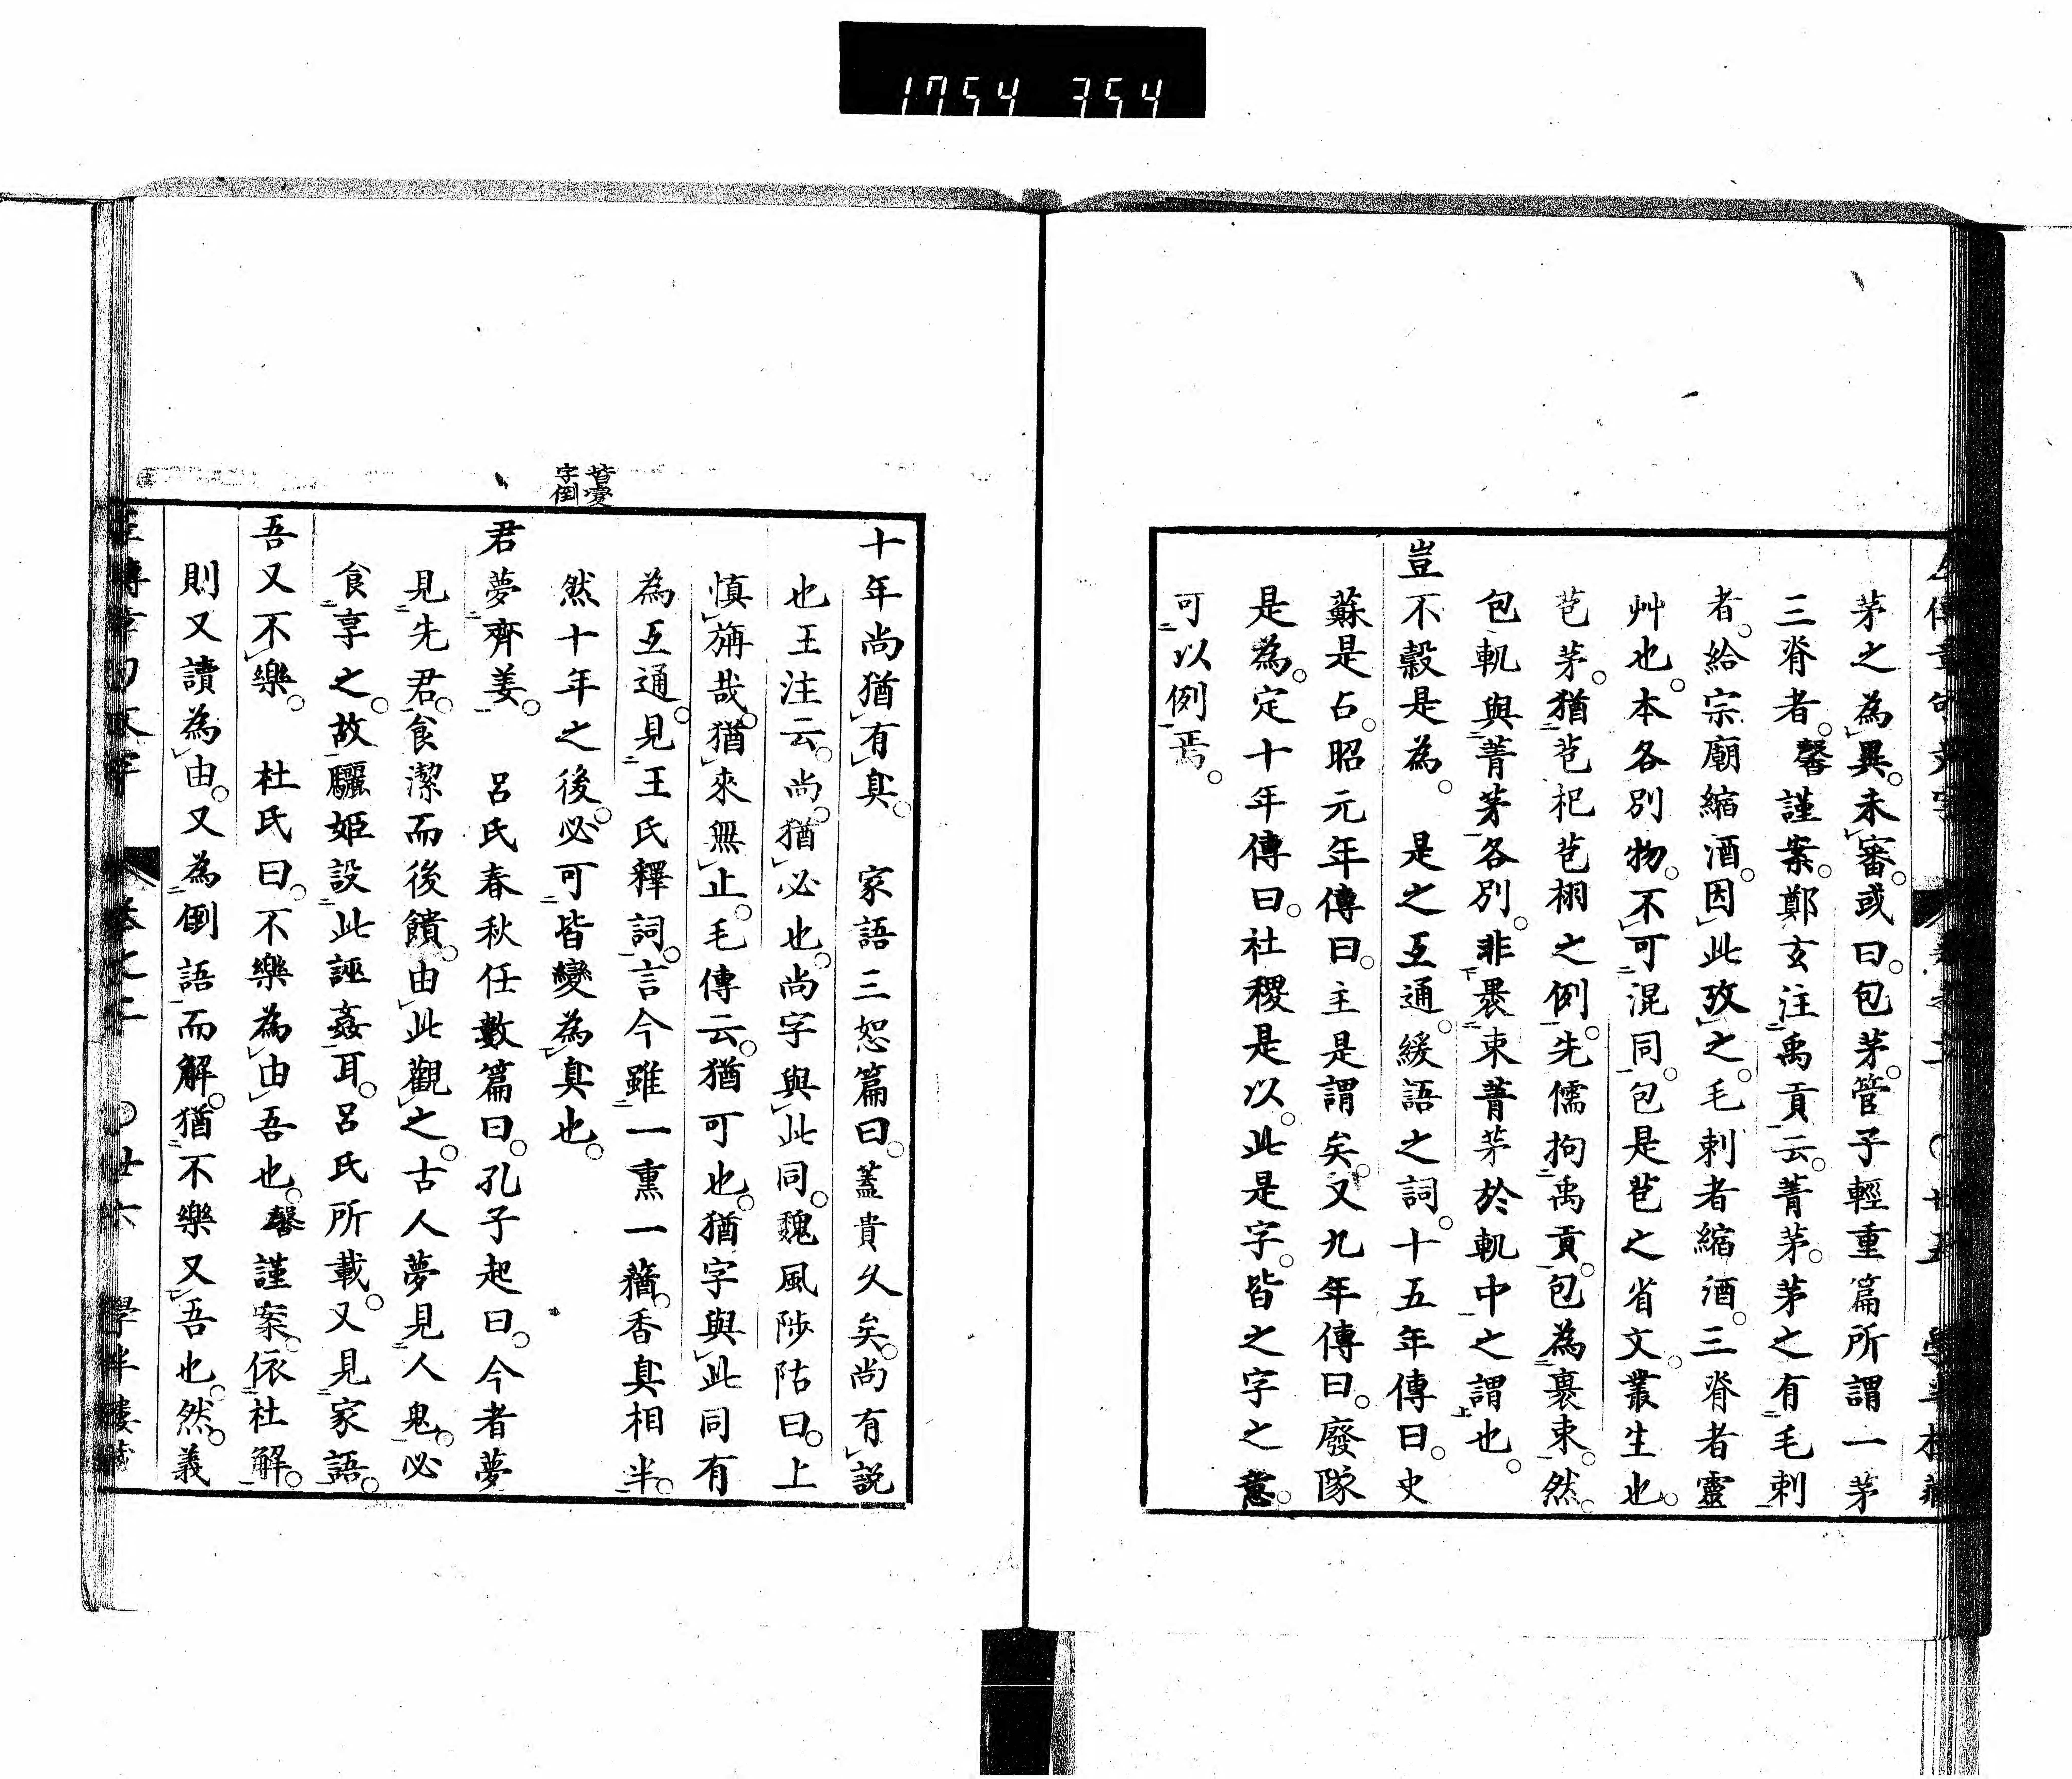 1754 354
左傳章句文字
茅之為異。未審。或曰。包茅。管子輕重篇所謂一茅
三脊者。馨謹案。鄭玄注禹貢云。菁茅。茅之有毛刺
者。給宗廟縮酒。因此攷之。毛刺者縮酒。三脊者靈
艸也。本各別物。不可混同。包是苞之省文。叢生也。
苞茅。猶苞杞苞栩之例。先儒拘禹貢。包為裹束。然
包軌與菁茅各別。非褁束菁茅於軌中之謂也。
豈不穀是為。 是之互通。緩語之詞。十五年傳曰。史
蘇是占。昭元年傳曰。主是謂矣。又九年傳曰。廢隊
是為。定十年傳曰。社稷是以。此是字。皆之字之意。
可以例焉。
皆變
字倒
十年尚猶有臭。 家語三恕篇曰。蓋貴久矣。尚有說
也王注云。尚。猶必也。尚字與此同。魏風陟岵曰。上
慎旃哉。猶來無止。毛傳云。猶可也。猶字與此同有
為互通。見王氏釋詞。言今雖一熏一蕕。香臭相半。
然十年之後。必可皆變為臭也。
君夢齊姜。 呂氏春秋任數篇曰。孔子起曰。今者夢
見先君。食潔而後饋。由此觀之。古人夢見人鬼。必
食享之。故驪姬設此誣姦耳。呂氏所載。又見家語。
吾又不樂。 杜氏曰。不樂為由吾也。馨謹案。依杜解。
則又讀為由。又為倒語而解。猶不樂又吾也。然。義
左傳章句文字 卷之二 廿六 學半樓藏